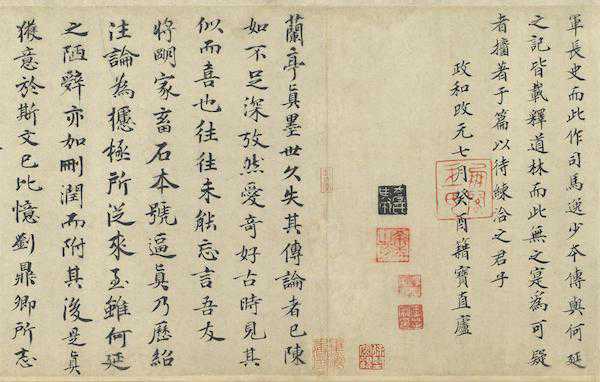 軍長史而此作司馬逸少本傳與何延
之記皆載釋道林而此無之寔為可疑
者擅著于篇以待練洽之君子
政和改元七月癸酉籍寶直廬
蘭亭眞墨世久失其傳論者已陳
如不足深攷然愛奇好古時見其
似而喜也往往未能忘言吾友
將明家畜石本號逼眞乃歷紹
注論為極所從來至雖何延
之陋僻亦加刪潤而附其後是眞
獲意於斯文已比憶劉鼎卿所志